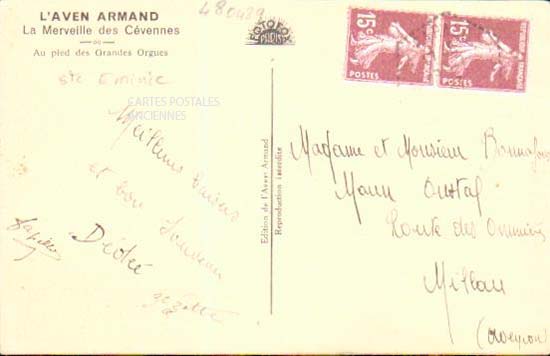 L'AVEN ARMAND
La Merveille des Cévennes
Au pied des Grandes Orgues
480489
Ste Enimie
CARTES POSTALES
ANCIENNES
Meilleurs baisers
et bon souvenir
Dédée
Edition de l'Aven Armand
Reproduction interdite
15c
POSTES
15c
REPUBLIQUE FRANÇAISE
POSTES
Madame et Monsieur
Route des
Millau
(Aveyron)